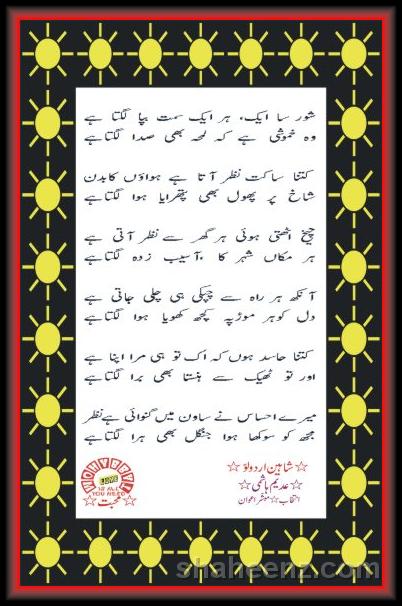 شور سا ایک، ہر ایک سمت بپا لگتا ہے
وہ خموشی ہے کہ لمحہ بھی صدا لگتاہے
کتنا ساکت نظر آتا ہے ہواؤں کابدن
شاخ پر پھول بھی پتھرایا ہوا لگتاہے
چیخ اٹھتی ہوئی ہر گھر سے نظر آتی ہے
ہر مکاں شہر کا ،آسیب زدہ لگتاہے
آنکھ ہر راہ سے چپکی ہی چلی جاتی ہے
دل کوہر موڑپہ کچھ کھویا ہوا لگتاہے
کتنا حاسد ہوں کہ اک تو ہی مرا اپنا ہے
اور تو ٹھیک سے ہنستا بھی برا لگتاہے
میرے احساس نے ساون میں گنوائی ہےنظر
مجھ کو سوکھا ہوا جنگل بھی ہرا لگتاہے
☆ شاہین اردولؤ ☆
☆ عدیم ہاشمی ☆
انتخاب☆مبشراعوان
LOVE
IS ALL
YOU NEED
☆محبت☆
shaheenz.com